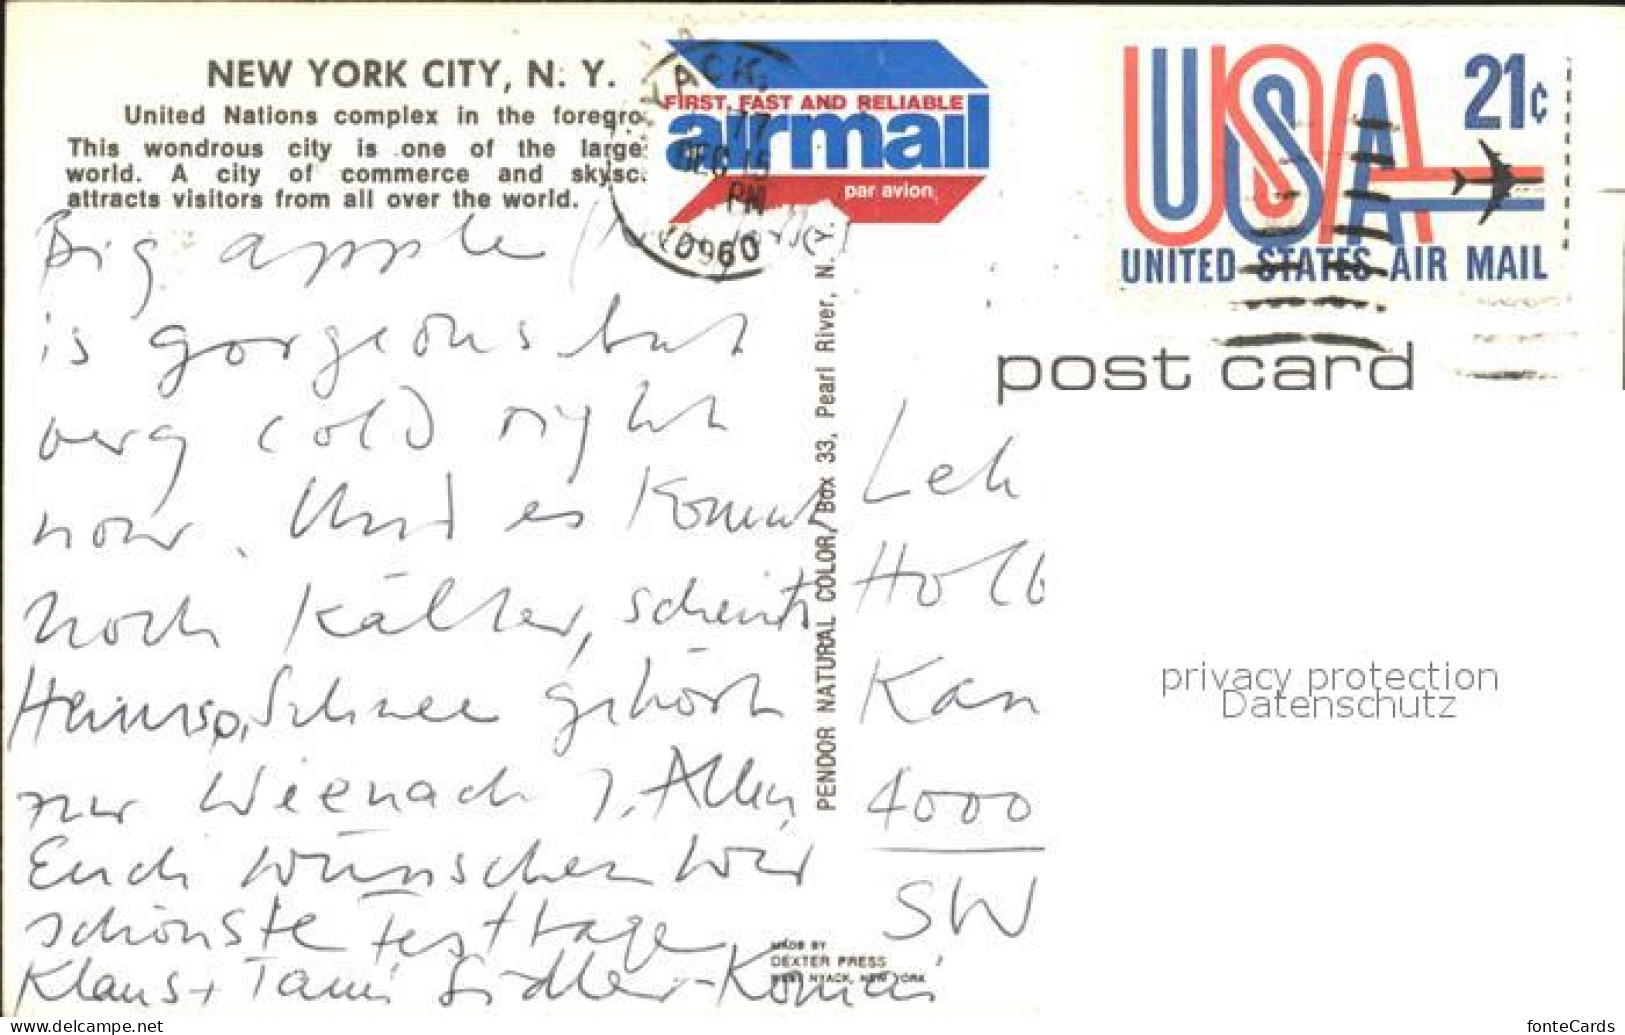 NEW YORK CITY, N. Y.
United Nations complex in the foregro
This wondrous city is one of the large
world. A city of commerce and skysc.
attracts visitors from all over the world.
ACK,
77
DEC 15
PM
10960
FIRST, FAST AND RELIABLE
airmail
par avion
USA
21¢
UNITED STATES AIR MAIL
post card
Big apple
is gorgeous but
very cold right
now. Und es kommt
noch kälter, scheint's
Schnee gehört
zur
Euch wünschen wir
schönste Festtage
Klaus +
PENDOR NATURAL COLOR, Box 33, Pearl River, N. Y.
Leh
Kan
4000
SW
MADE BY
DEXTER PRESS
WEST NYACK, NEW YORK
privacy protection
Datenschutz
fonteCards
© delcampe.net